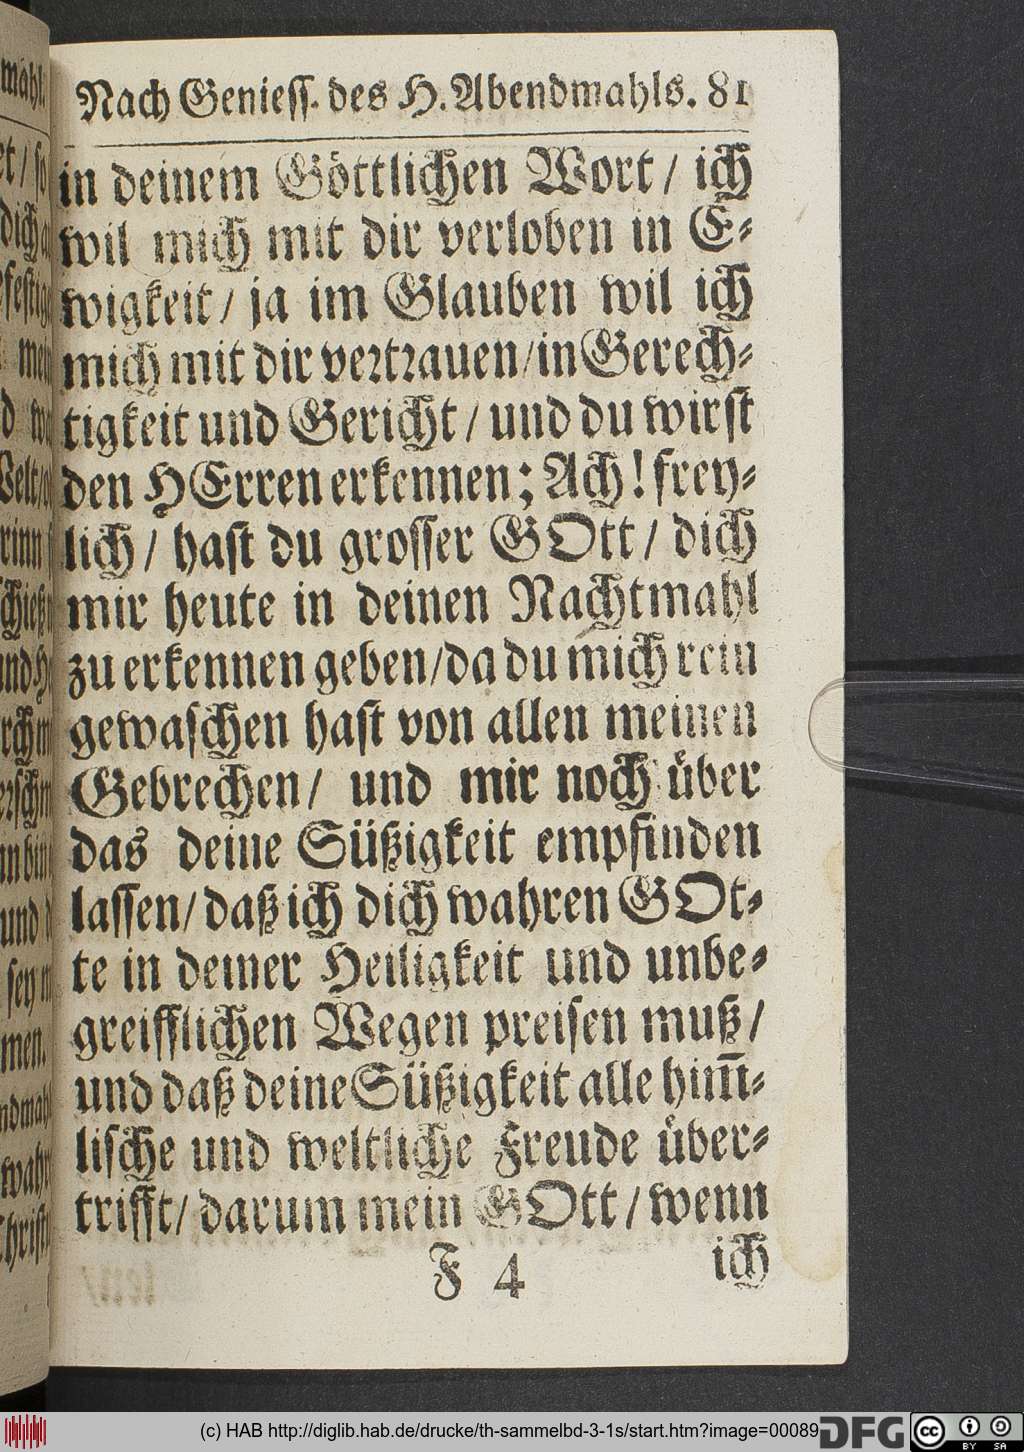 Nach Geniess. des H. Abendmahls. 81
in deinem Göttlichen Wort / ich
wil mich mit dir verloben in E-
wigkeit / ja im Glauben wil ich
mich mit dir vertrauen / in Gerech-
tigkeit und Gericht / und du wirst
den HErren erkennen; Ach! frey-
lich / hast du grosser GOtt / dich
mir heute in deinen Nachtmahl
zu erkennen geben / da du mich rein
gewaschen hast von allen meinen
Gebrechen / und mir noch über
das deine Süßigkeit empfinden
lassen / daß ich dich wahren GOt-
te in deiner Heiligkeit und unbe-
greifflichen Wegen preisen muß /
und daß deine Süßigkeit alle him̅-
lische und weltliche Freude über-
trifft / darum mein GOtt / wenn
F 4 ich
(c) HAB http://diglib.hab.de/drucke/th-sammelbd-3-1s/start.htm?image=00089
DFG cc BY SA